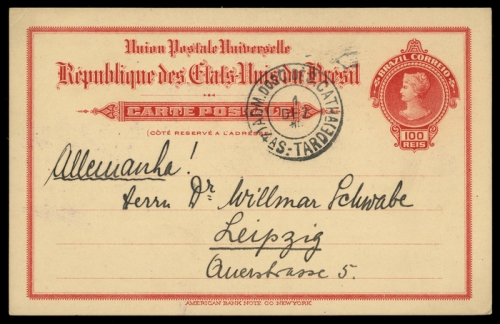 Union Postale Universelle
République des États-Unis du Brésil
BRAZIL CORREIO
CARTE POSTALE
(CÔTÉ RESERVÉ A L'ADRESSE)
100
REIS
4as TARDE
Allemanha!
Herrn Dr Willmar Schwabe
Leipzig
Querstrasse 5.
AMERICAN BANK NOTE CO NEW YORK